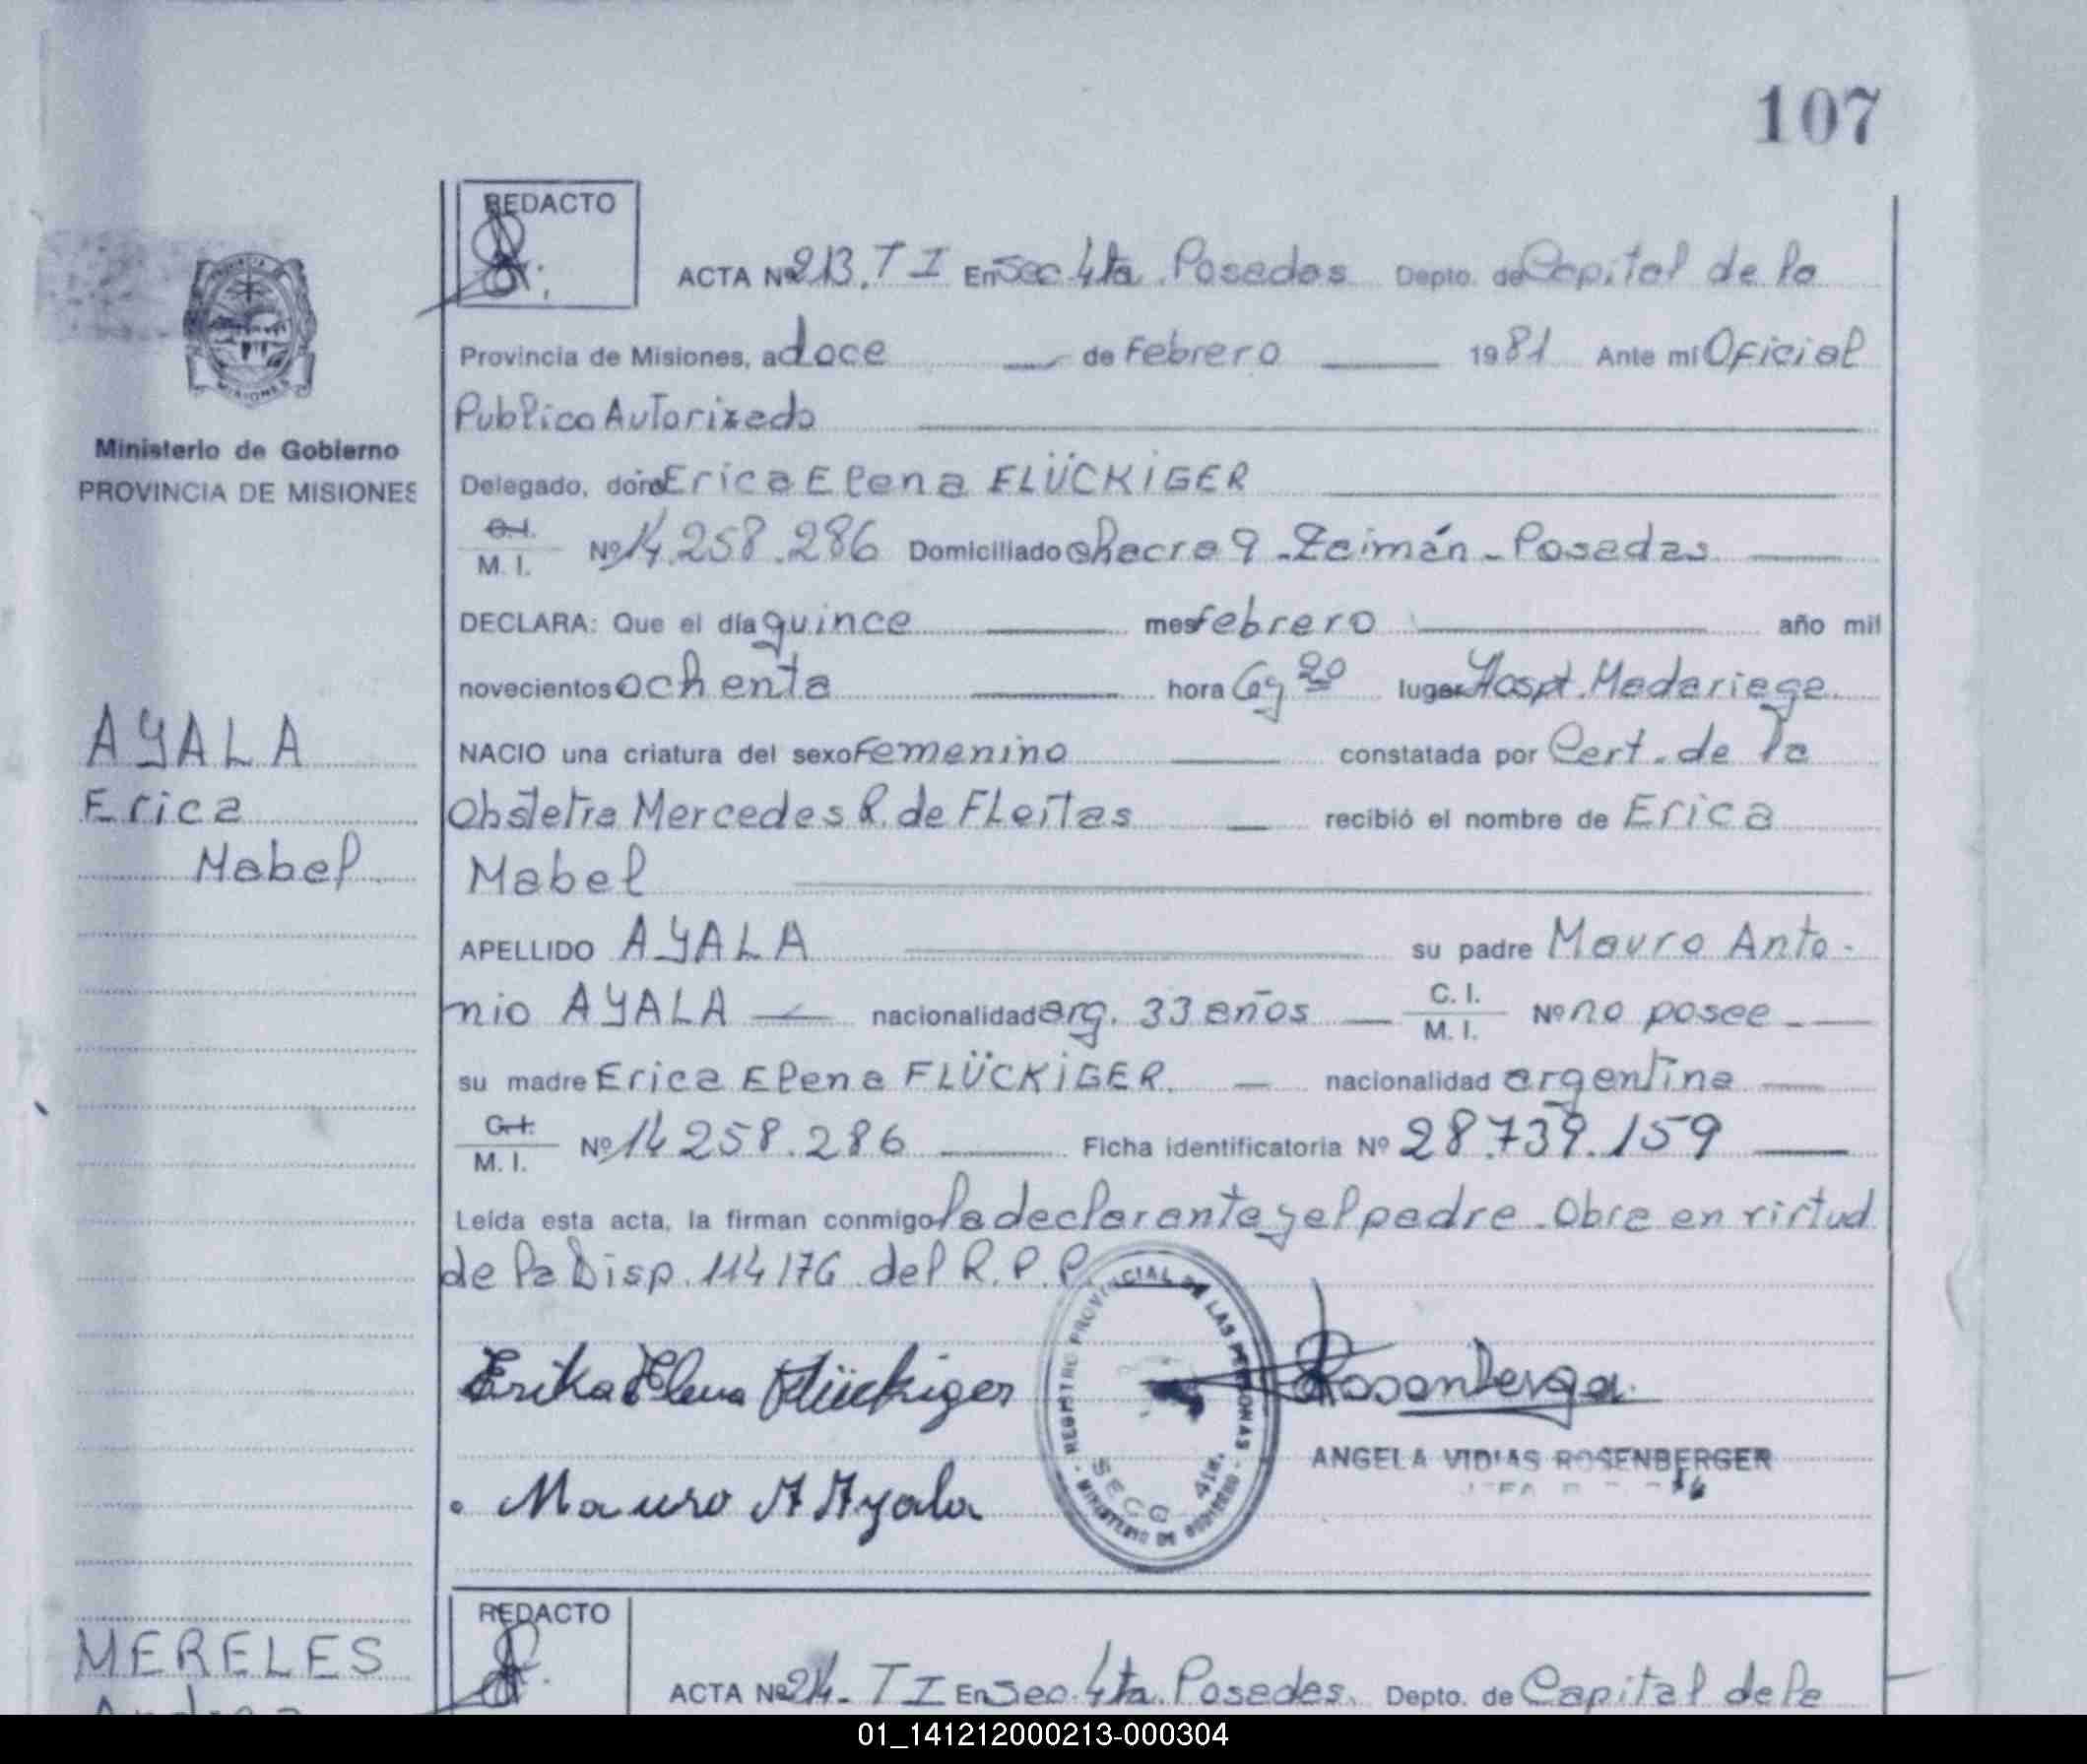 107
REDACTO
ACTA Nº 213. T I En Sec 4ta. Posadas Depto. de Capital de la
Provincia de Misiones, a doce de Febrero 1981 Ante mí Oficial
Publico Autorizado
Ministerio de Gobierno
PROVINCIA DE MISIONES
Delegado, don Erica Elena FLÜCKIGER
C.I.
M. I. Nº 14.258.286 Domiciliado chacra 9 - Zaimán - Posadas
DECLARA: Que el día quince mes febrero año mil
novecientos ochenta hora 20 lugar Hospt. Madariaga
AYALA
Erica
Mabel
NACIO una criatura del sexo Femenino constatada por Cert. de la
Obstetra Mercedes R. de FLeitas recibió el nombre de Erica
Mabel
APELLIDO AYALA su padre Mauro Anto-
nio AYALA nacionalidad arg. 33 años C. I. M. I. Nº no posee
su madre Erica Elena FLÜCKIGER. nacionalidad argentina
C.I.
M. I. Nº 14 258.286 Ficha identificatoria Nº 28.739.159
Leída esta acta, la firman conmigo la declarante y el padre. Obra en virtud
de la Disp. 114/76 del R. P. P.
REGISTRO PROVINCIAL DE LAS PERSONAS
MINISTERIO DE GOBIERNO
SECC 4ta.
Erika Elena Flückiger
Rosenberger
ANGELA VIDIAS ROSENBERGER
Mauro A Ayala
MERELES
Andrea
REDACTO
ACTA Nº 214 - T I En Sec. 4ta. Posadas. Depto. de Capital de la
01_141212000213-000304